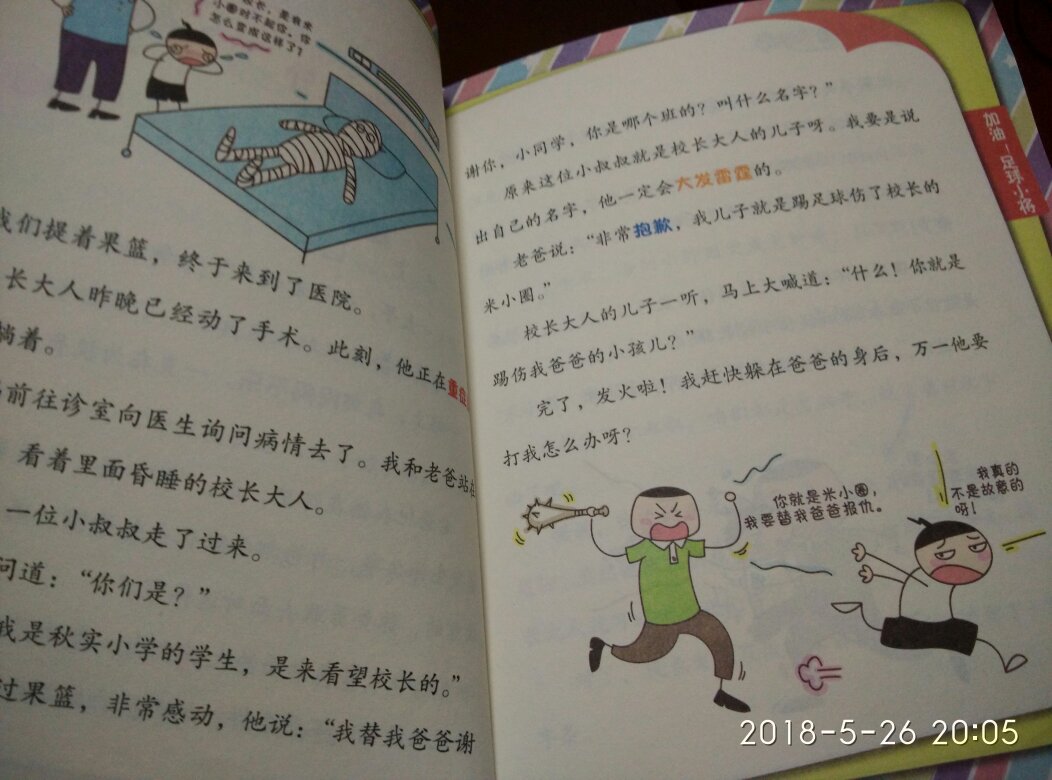 长，是我米
小圈对不起你，你
怎么变成这样了？
我们提着果篮，终于来到了医院。
长大人昨晚已经动了手术。此刻，他正在重症
躺着。
前往诊室向医生询问病情去了。我和老爸站在
看着里面昏睡的校长大人。
一位小叔叔走了过来。
问道：“你们是？”
我是秋实小学的学生，是来看望校长的。”
过果篮，非常感动，他说：“我替我爸爸谢
谢你，小同学，你是哪个班的？叫什么名字？”
原来这位小叔叔就是校长大人的儿子呀。我要是说
出自己的名字，他一定会大发雷霆的。
老爸说：“非常抱歉，我儿子就是踢足球伤了校长的
米小圈。”
校长大人的儿子一听，马上大喊道：“什么！你就是
踢伤我爸爸的小孩儿？”
完了，发火啦！我赶快躲在爸爸的身后，万一他要
打我怎么办呀？
你就是米小圈，
我要替我爸爸报仇。
我真的
不是故意的
呀！
加油！足球小将
2018-5-26 20:05